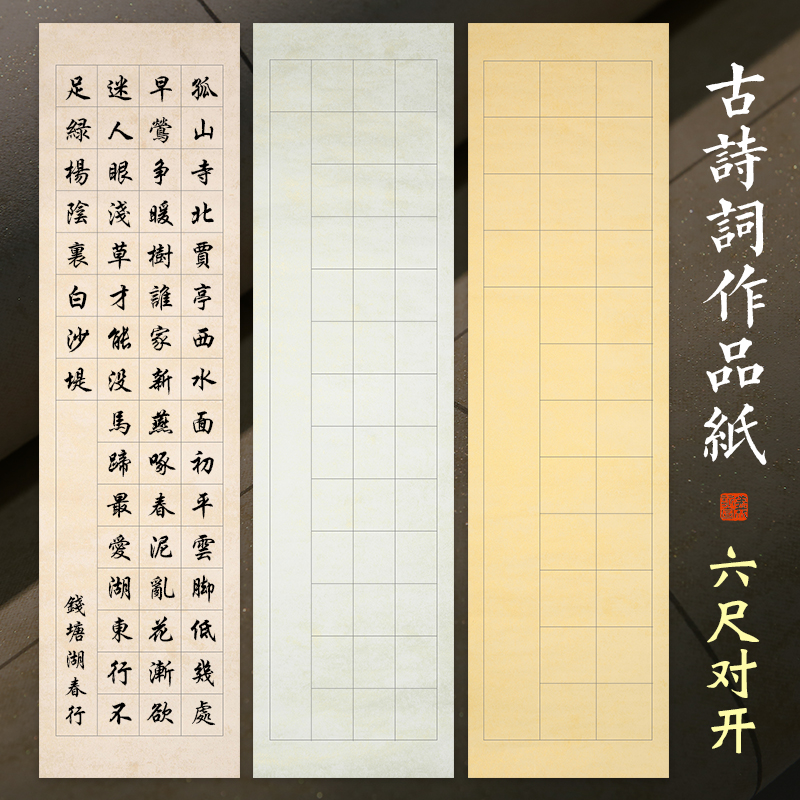 古詩詞作品紙
六尺对开
孤山寺北賈亭西水面初平雲脚低幾處
早鶯争暖樹誰家新燕啄春泥亂花漸欲
迷人眼淺草才能没馬蹄最愛湖東行不
足緑楊陰裏白沙堤
錢塘湖春行